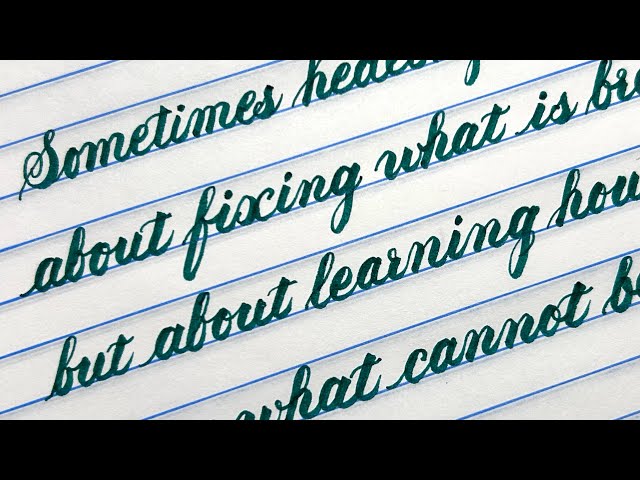 Sometimes healing
about fixing what is
but about learning how
what cannot